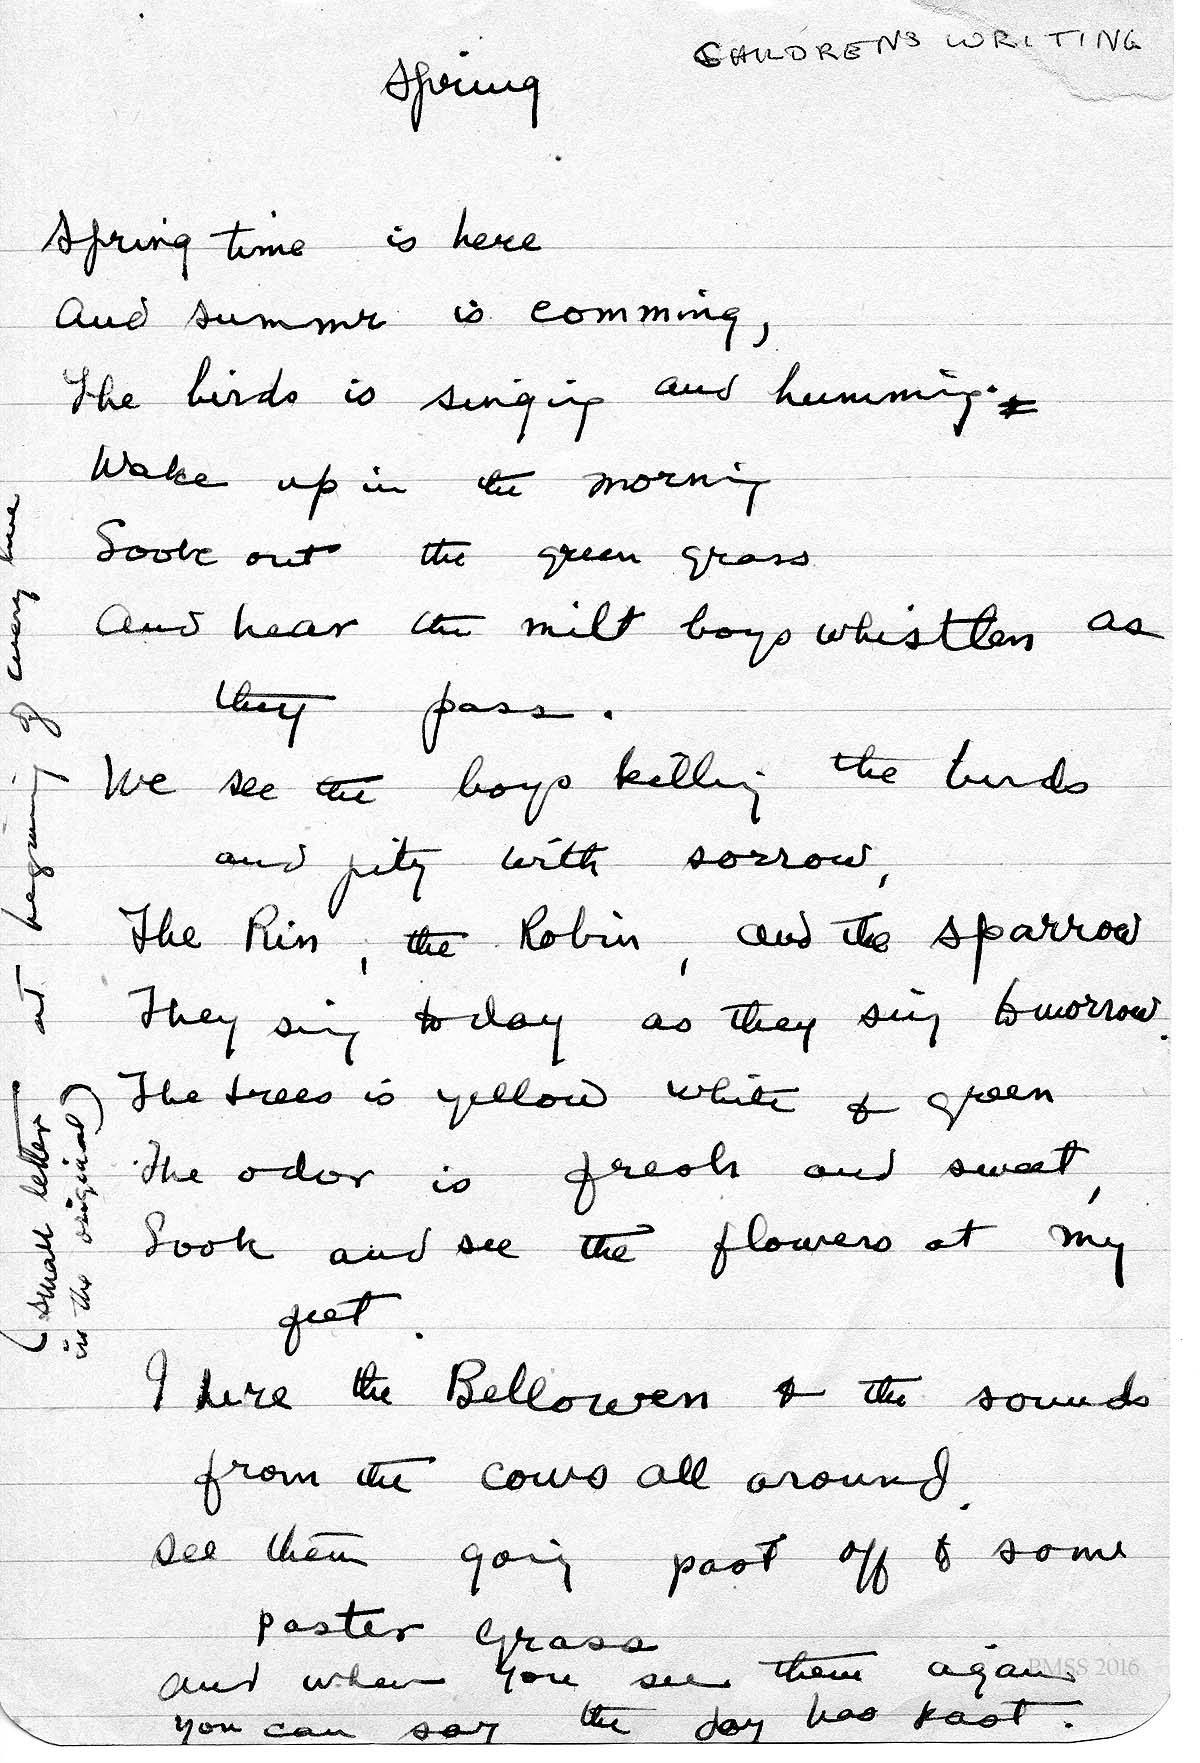 CHILDRENS WRITING
Spring
Spring time is here
And summr is comming,
The birds is singing and humming.
Wake up in the morning
Look out the green grass
And hear the milt boys whistlen as
they pass.
We see the boys killing the birds
and pity with sorrow,
The Rin, the Robin, and the sparrow
They sing today as they sing tomorrow.
The trees is yellow white & green
The odor is fresh and sweet,
Look and see the flowers at my
feet.
I hire the Bellowen & the sounds
from the cows all around.
see them going past off to some
paster grass
and when you see them again
you can say the day has past.
(small letter at beginning of every line
in the original)
PMSS 2016